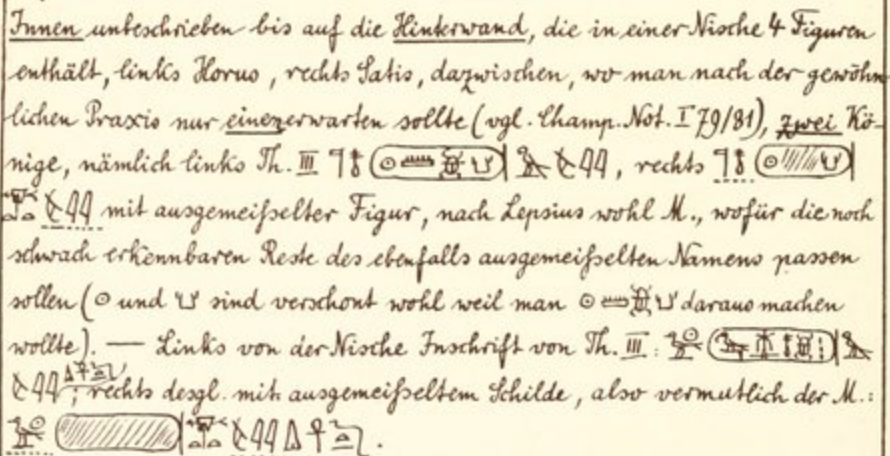 Innen unbeschrieben bis auf die Hinterwand, die in einer Nische 4 Figuren
enthält, links Horus, rechts Satis, dazwischen, wo man nach der gewöhn-
lichen Praxis nur einen erwarten sollte (vgl. Champ. Not. I 79/81), zwei Kö-
nige, nämlich links Th. III 𓊹𓄤 (𓇳𓏠𓆣𓂓) , rechts 𓊹𓄤 (𓇳 𓂓)
mit ausgemeißelter Figur, nach Lepsius wohl M., wofür die noch
schwach erkennbaren Reste des ebenfalls ausgemeißelten Namens passen
sollen (𓇳 und 𓂓 sind verschont wohl weil man 𓇳𓏠𓆣𓂓 daraus machen
wollte). — Links von der Nische Inschrift von Th. III :
; rechts desgl. mit ausgemeißeltem Schilde, also vermutlich der M.: